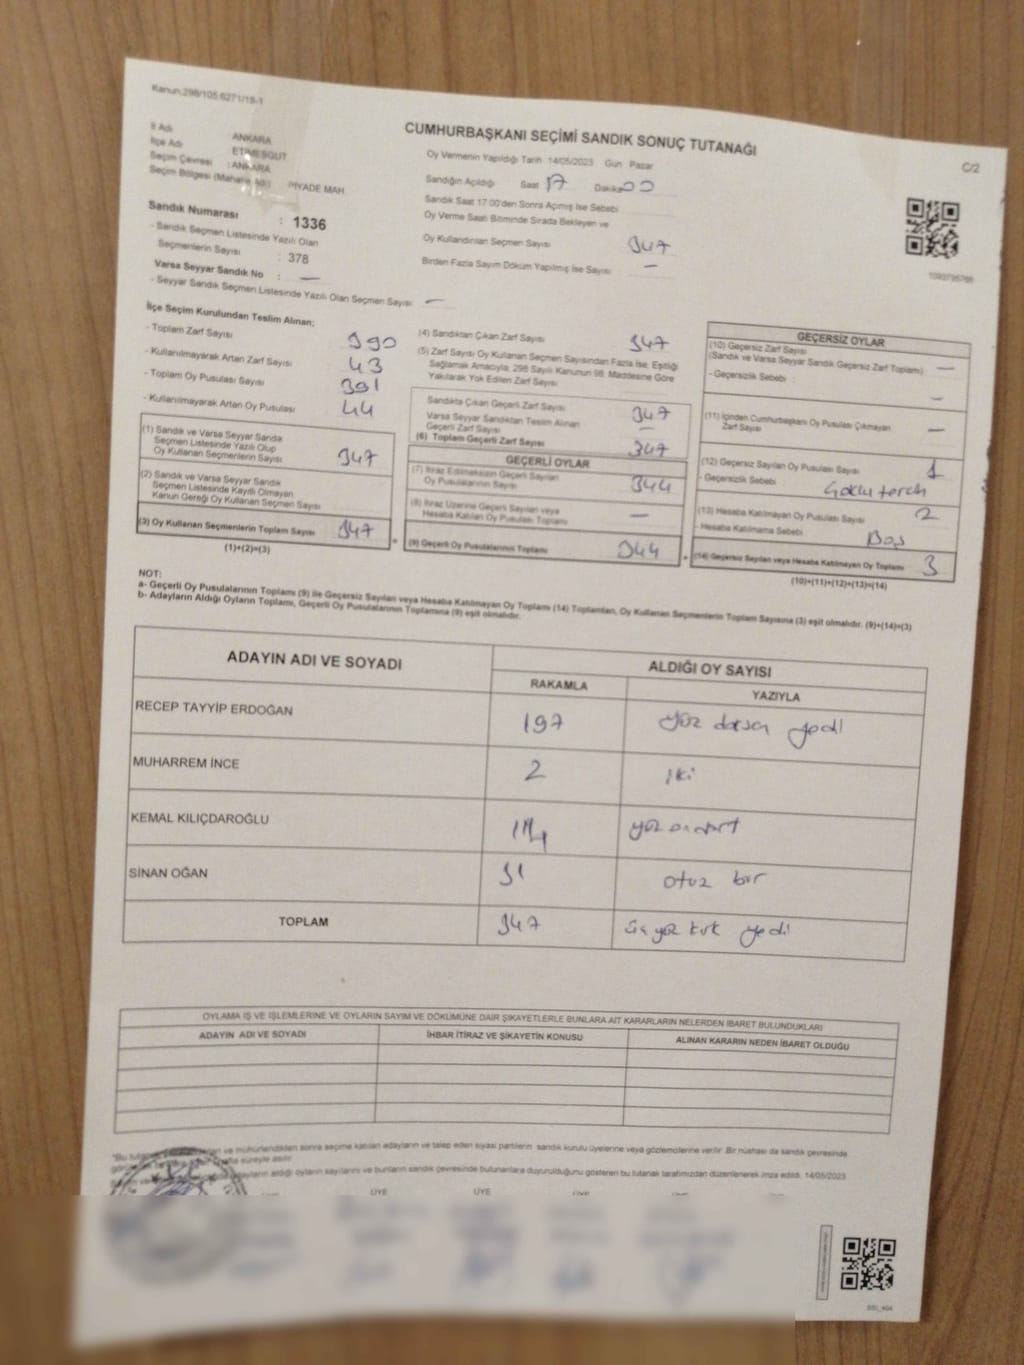 Kanun:298/105.6271/18-1
CUMHURBAŞKANI SEÇİMİ SANDIK SONUÇ TUTANAĞI
C/2
İl Adı : ANKARA
İlçe Adı : ETİMESGUT
Seçim Çevresi : ANKARA
Seçim Bölgesi (Mahalle Adı) : PİYADE MAH.
Oy Vermenin Yapıldığı Tarih 14/05/2023 Gün Pazar
Sandığın Açıldığı Saat 17 Dakika 00
Sandık Saat 17:00'den Sonra Açımış İse Sebebi
Oy Verme Saati Bitiminde Sırada Bekleyen ve
Oy Kullandırılan Seçmen Sayısı 347
Birden Fazla Sayım Döküm Yapılmış İse Sayısı —
Sandık Numarası : 1336
- Sandık Seçmen Listesinde Yazılı Olan
Seçmenlerin Sayısı : 378
Varsa Seyyar Sandık No : —
- Seyyar Sandık Seçmen Listesinde Yazılı Olan Seçmen Sayısı: —
İlçe Seçim Kurulundan Teslim Alınan;
- Toplam Zarf Sayısı 390
- Kullanılmayarak Artan Zarf Sayısı 43
- Toplam Oy Pusulası Sayısı 391
- Kullanılmayarak Artan Oy Pusulası 44
(1) Sandık ve Varsa Seyyar Sandık
Seçmen Listesinde Yazılı Olup
Oy Kullanan Seçmenlerin Sayısı 347
(2) Sandık ve Varsa Seyyar Sandık
Seçmen Listesinde Kayıtlı Olmayan
Kanun Gereği Oy Kullanan Seçmen Sayısı
(3) Oy Kullanan Seçmenlerin Toplam Sayısı 347
(1)+(2)=(3)
(4) Sandıktan Çıkan Zarf Sayısı 347
(5) Zarf Sayısı Oy Kullanan Seçmen Sayısından Fazla İse, Eşitliği
Sağlamak Amacıyla; 298 Sayılı Kanunun 98. Maddesine Göre
Yakılarak Yok Edilen Zarf Sayısı
Sandıkta Çıkan Geçerli Zarf Sayısı 347
Varsa Seyyar Sandıktan Teslim Alınan
Geçerli Zarf Sayısı —
(6) Toplam Geçerli Zarf Sayısı 347
GEÇERLİ OYLAR
(7) İtiraz Edilmeksizin Geçerli Sayılan
Oy Pusulalarının Sayısı 344
(8) İtiraz Üzerine Geçerli Sayılan veya
Hesaba Katılan Oy Pusulası Toplamı —
(9) Geçerli Oy Pusulalarının Toplamı 344
GEÇERSİZ OYLAR
(10) Geçersiz Zarf Sayısı
(Sandık ve Varsa Seyyar Sandık Geçersiz Zarf Toplamı) —
- Geçersizlik Sebebi : —
(11) İçinden Cumhurbaşkanı Oy Pusulası Çıkmayan
Zarf Sayısı —
(12) Geçersiz Sayılan Oy Pusulası Sayısı 1
- Geçersizlik Sebebi Çoklu tercih
(13) Hesaba Katılmayan Oy Pusulası Sayısı 2
- Hesaba Katılmama Sebebi Boş
(14) Geçersiz Sayılan veya Hesaba Katılmayan Oy Toplamı 3
(10)+(11)+(12)+(13)=(14)
NOT:
a- Geçerli Oy Pusulalarının Toplamı (9) ile Geçersiz Sayılan veya Hesaba Katılmayan Oy Toplamı (14) Toplamları, Oy Kullanan Seçmenlerin Toplam Sayısına (3) eşit olmalıdır. (9)+(14)=(3)
b- Adayların Aldığı Oyların Toplamı, Geçerli Oy Pusulalarının Toplamına (9) eşit olmalıdır.
ADAYIN ADI VE SOYADI
ALDIĞI OY SAYISI
RAKAMLA YAZIYLA
RECEP TAYYİP ERDOĞAN 197 yüz doksan yedi
MUHARREM İNCE 2 iki
KEMAL KILIÇDAROĞLU 114 yüz on dört
SİNAN OĞAN 31 otuz bir
TOPLAM 347 üç yüz kırk yedi
OYLAMA İŞ VE İŞLEMLERİNE VE OYLARIN SAYIM VE DÖKÜMÜNE DAİR ŞİKAYETLERLE BUNLARA AİT KARARLARIN NELERDEN İBARET BULUNDUKLARI
ADAYIN ADI VE SOYADI İHBAR İTİRAZ VE ŞİKAYETİN KONUSU ALINAN KARARIN NEDEN İBARET OLDUĞU
ve mühürlendikten sonra seçime katılan adayların ve talep eden siyasi partilerin sandık kurulu üyelerine veya gözlemcilerine verilir. Bir nüshası da sandık çevresinde
süreyle asılır.
aldığı oyların sayılarını ve bunların sandık çevresinde bulunanlara duyurulduğunu gösteren bu tutanak tarafımızdan düzenlenerek imza edildi. 14/05/2023
ÜYE ÜYE ÜYE